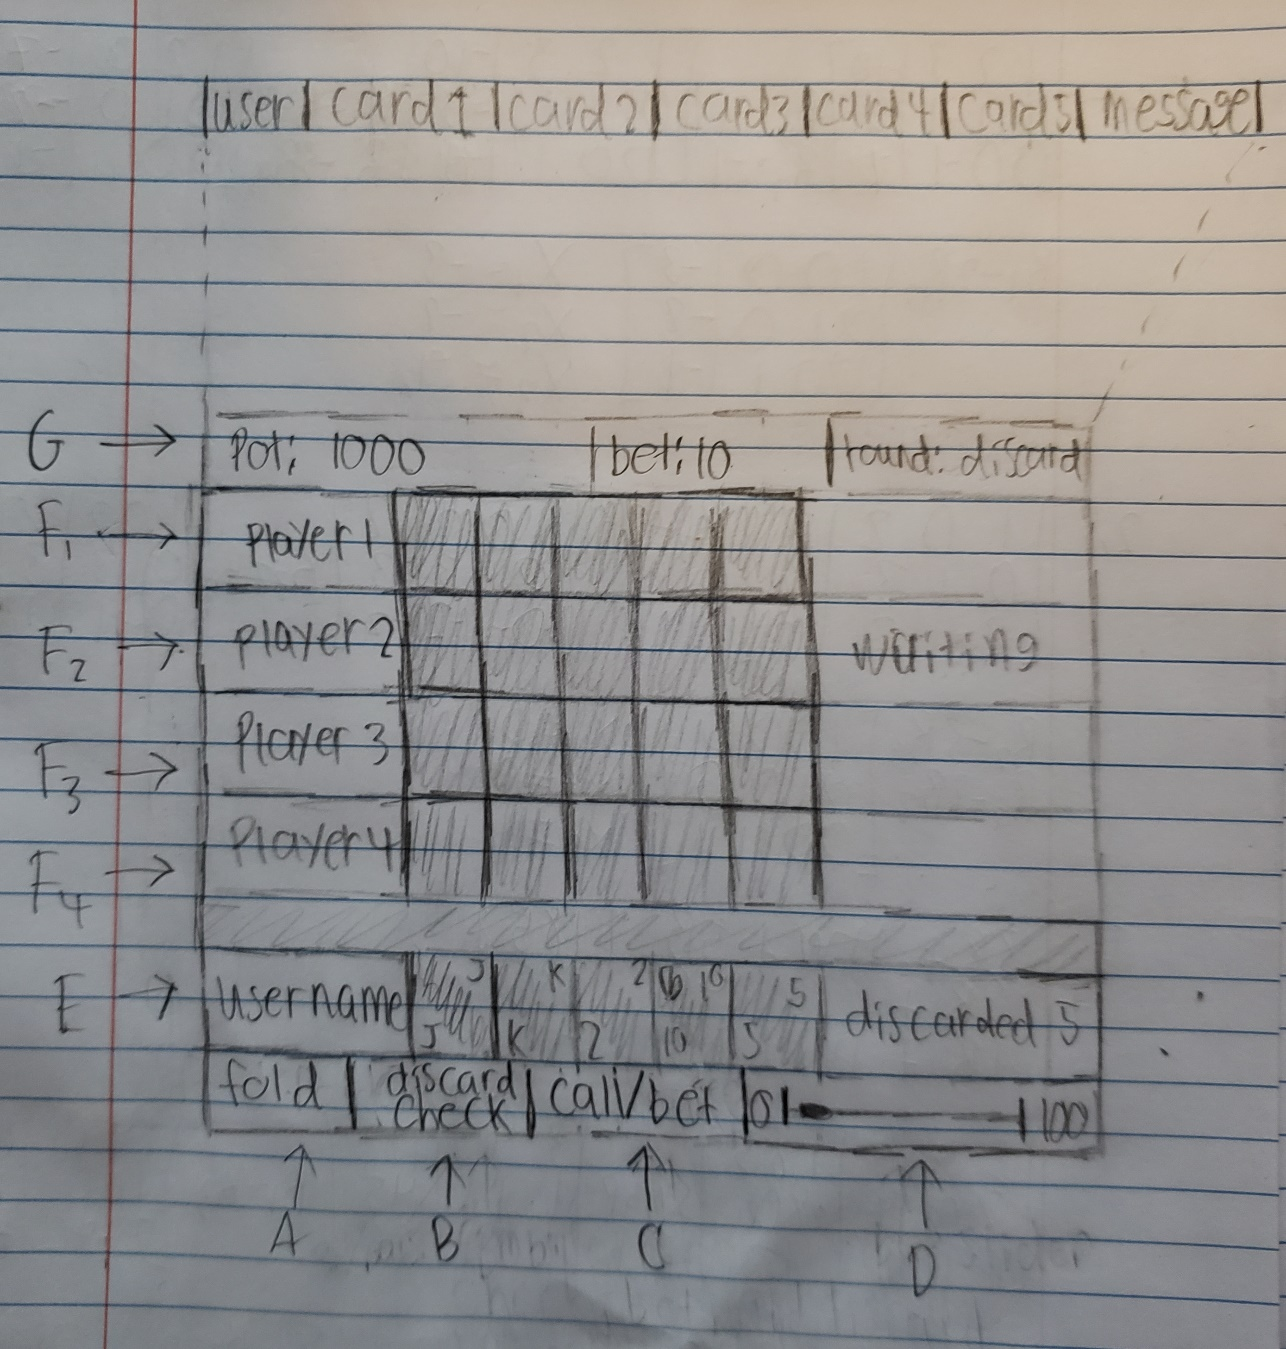 |user| card1 |card2| card3|card4|card5| message|
G → Pot: 1000 |bet:10 |round: discard
F1 → Player1
F2 → player2 waiting
F3 → Player 3
F4 → Player4
E → username J J K K 2 2 10 10 10 5 5 discarded 5
fold | discard check | call/bet |0 100
A B C D